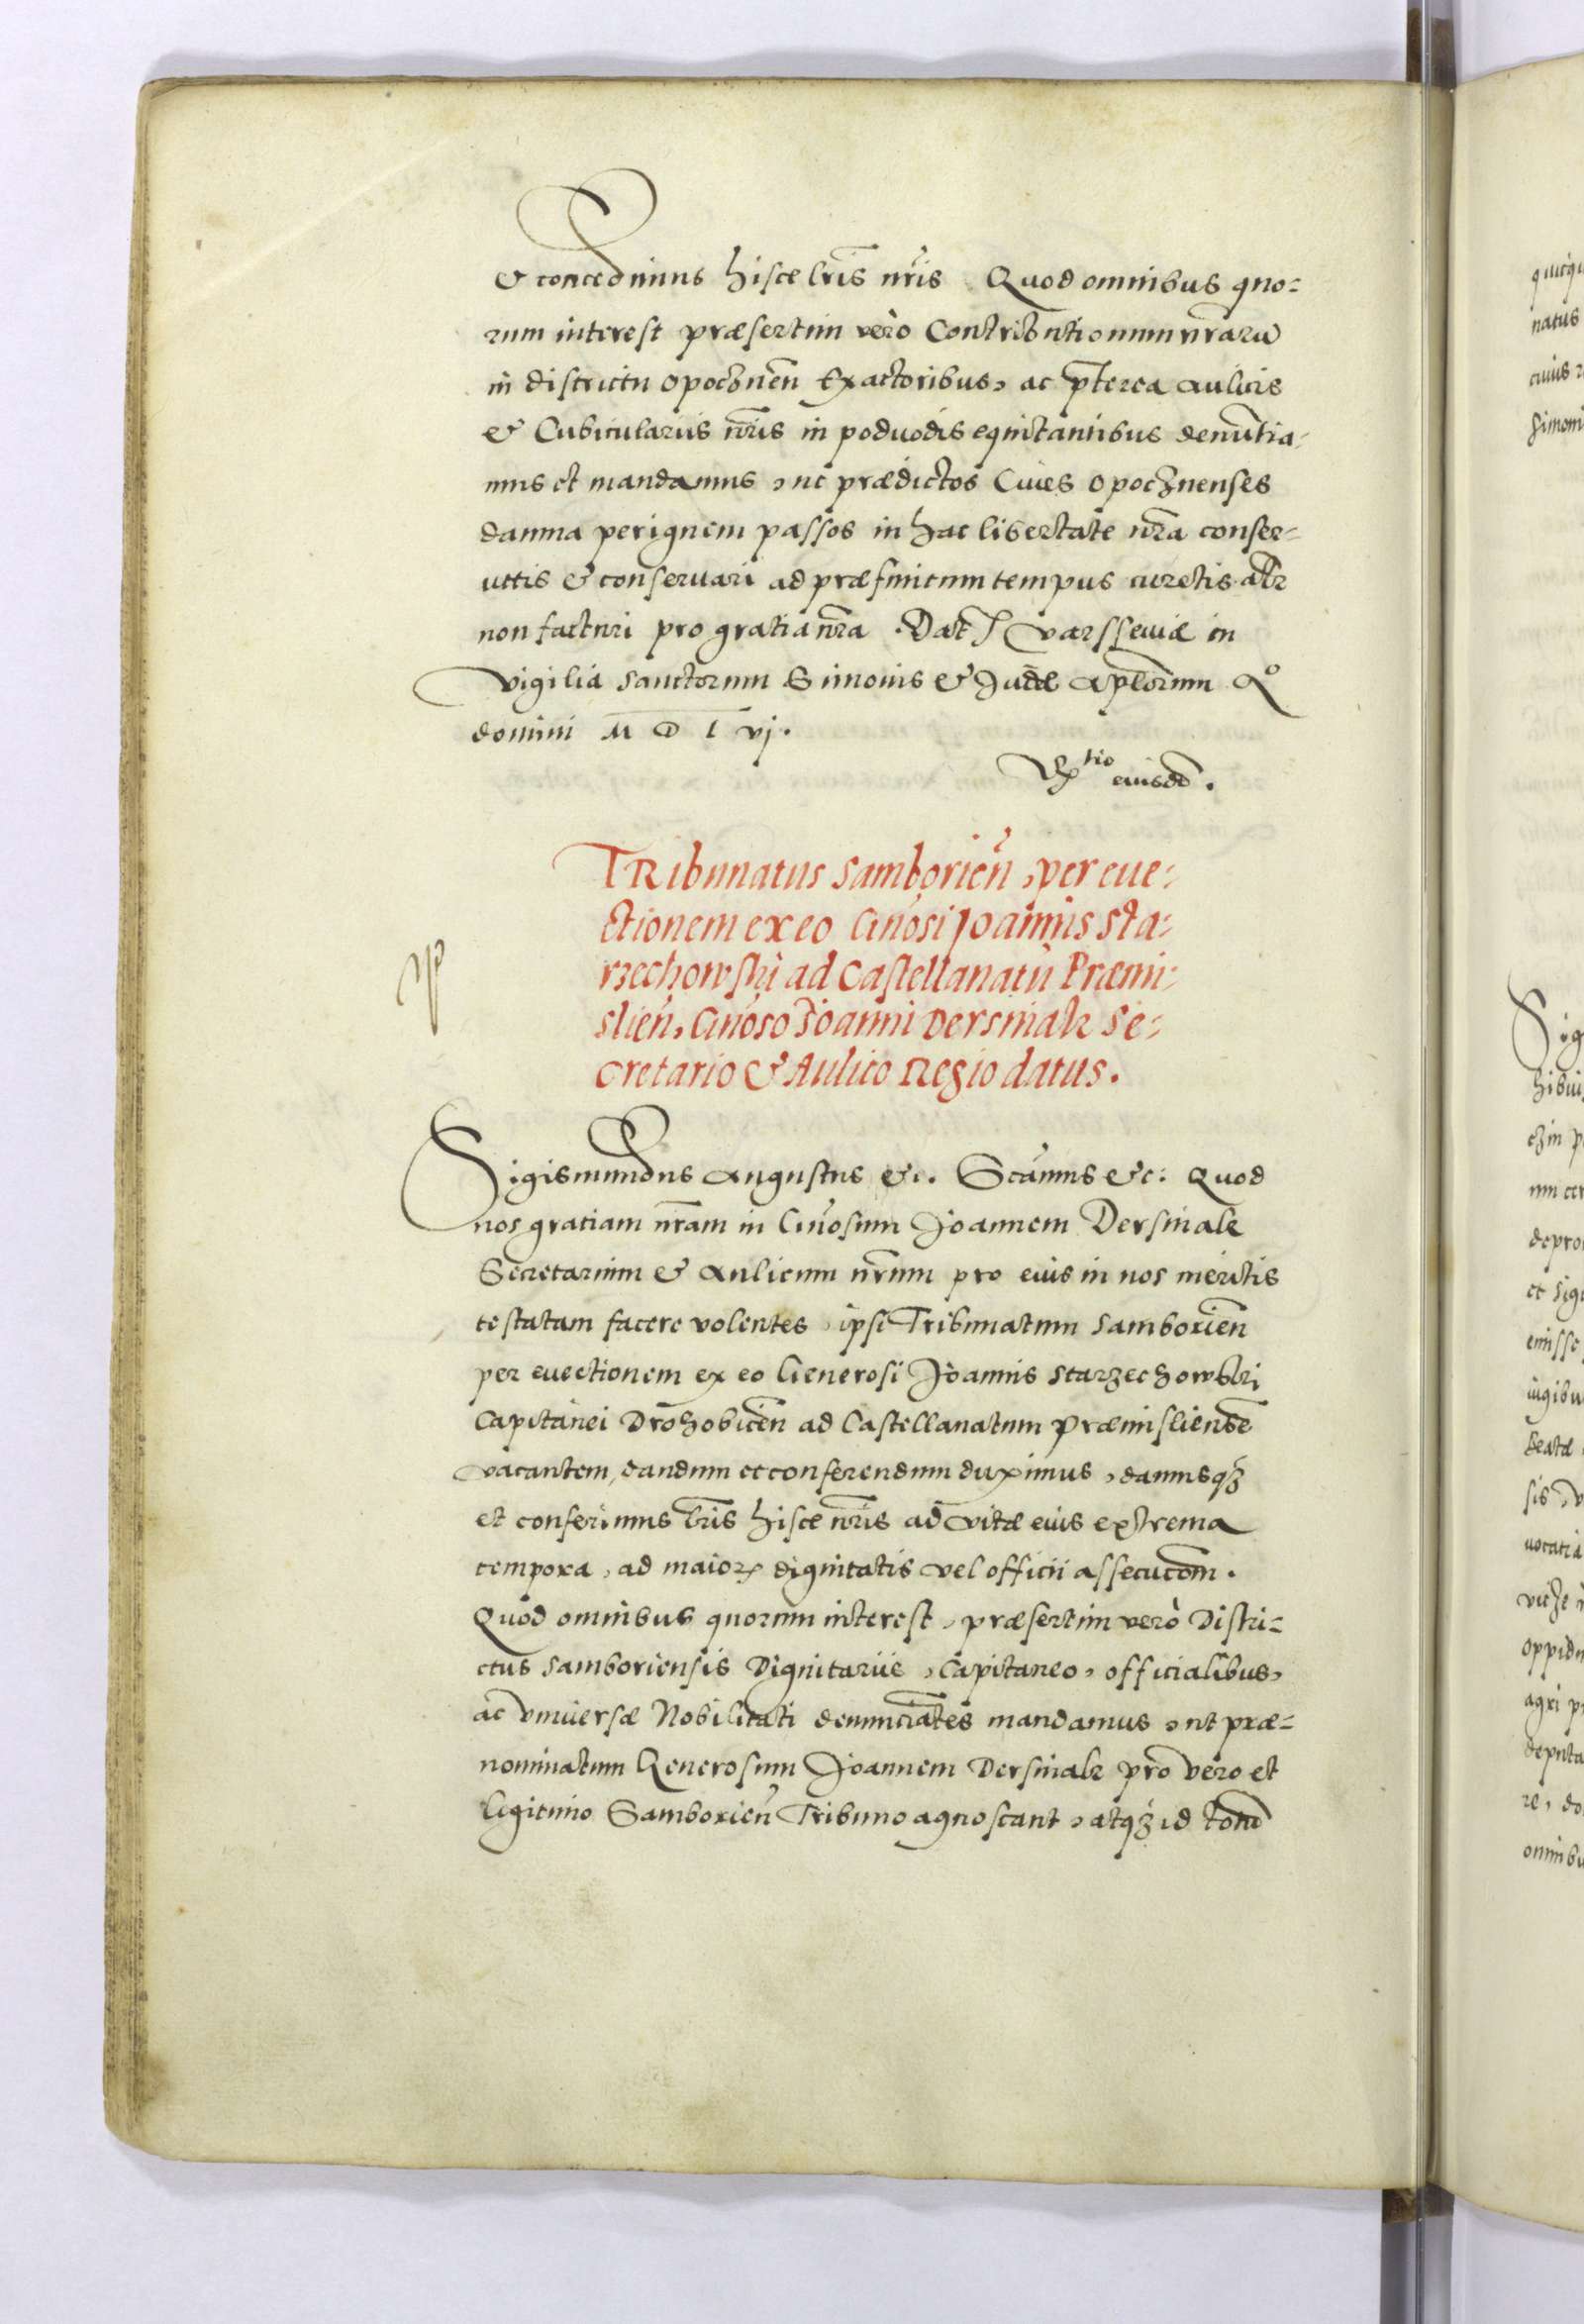 & concedimus hisce lr̃is nr̃is Quod omnibus quo-
rum interest præsertim vero Contributionum nr̃arũ
in districtu Opocznen̄ Exactoribus, ac p̄terea aulicis
& Cubiculariis nr̃is in podvodis equitantibus denuntia-
mus et mandamus, ut prædictos Cives Opocznenses
damna per ignem passos in hac libertate nr̃a conser-
vetis & conservari ad præfinitum tempus curetis. alr̃
non facturi pro gratia nr̃a. Dat̃ Varsseviæ in
vigilia sanctorum Simonis & Judæ ap̄lorum Aº
domini M D L vj.
Rtio eiusdē.
TRibunatus Samborien̄, per eve-
ctionem ex eo Gn̄osi Joannis Sta-
rzechowski ad Castellanatū Præmi-
slien̄, Gn̄oso Joanni Dersniak Se-
cretario & Aulico Regio datus.
Sigismundus Augustus &c. Sc̄amus &c: Quod
nos gratiam nr̃am in Gn̄osum Joannem Dersniak
Secretarium & Aulicum nr̃um pro eius in nos meritis
testatam facere volentes, ipsi Tribunatum Samborien̄
per evectionem ex eo Generosi Joannis Starzechowski
Capitanei Drohobicen̄ ad Castellanatum Præmisliensē
vacantem, dandum et conferendum duximus, damusqꝫ
et conferimus lr̃is hisce nr̃is ad vitæ eius extrema
tempora, ad maioꝝ dignitatis vel officii assecuc̄om.
Quod omnibus quorum interest, præsertim vero Distri-
ctus Samboriensis Dignitariis, Capitaneo, officialibus,
ac universæ Nobilitati denunciātes mandamus, ut præ-
nominatum Generosum Joannem Dersniak pro vero et
legitimo Samborien̄ Tribuno agnoscant, atqꝫ id totū